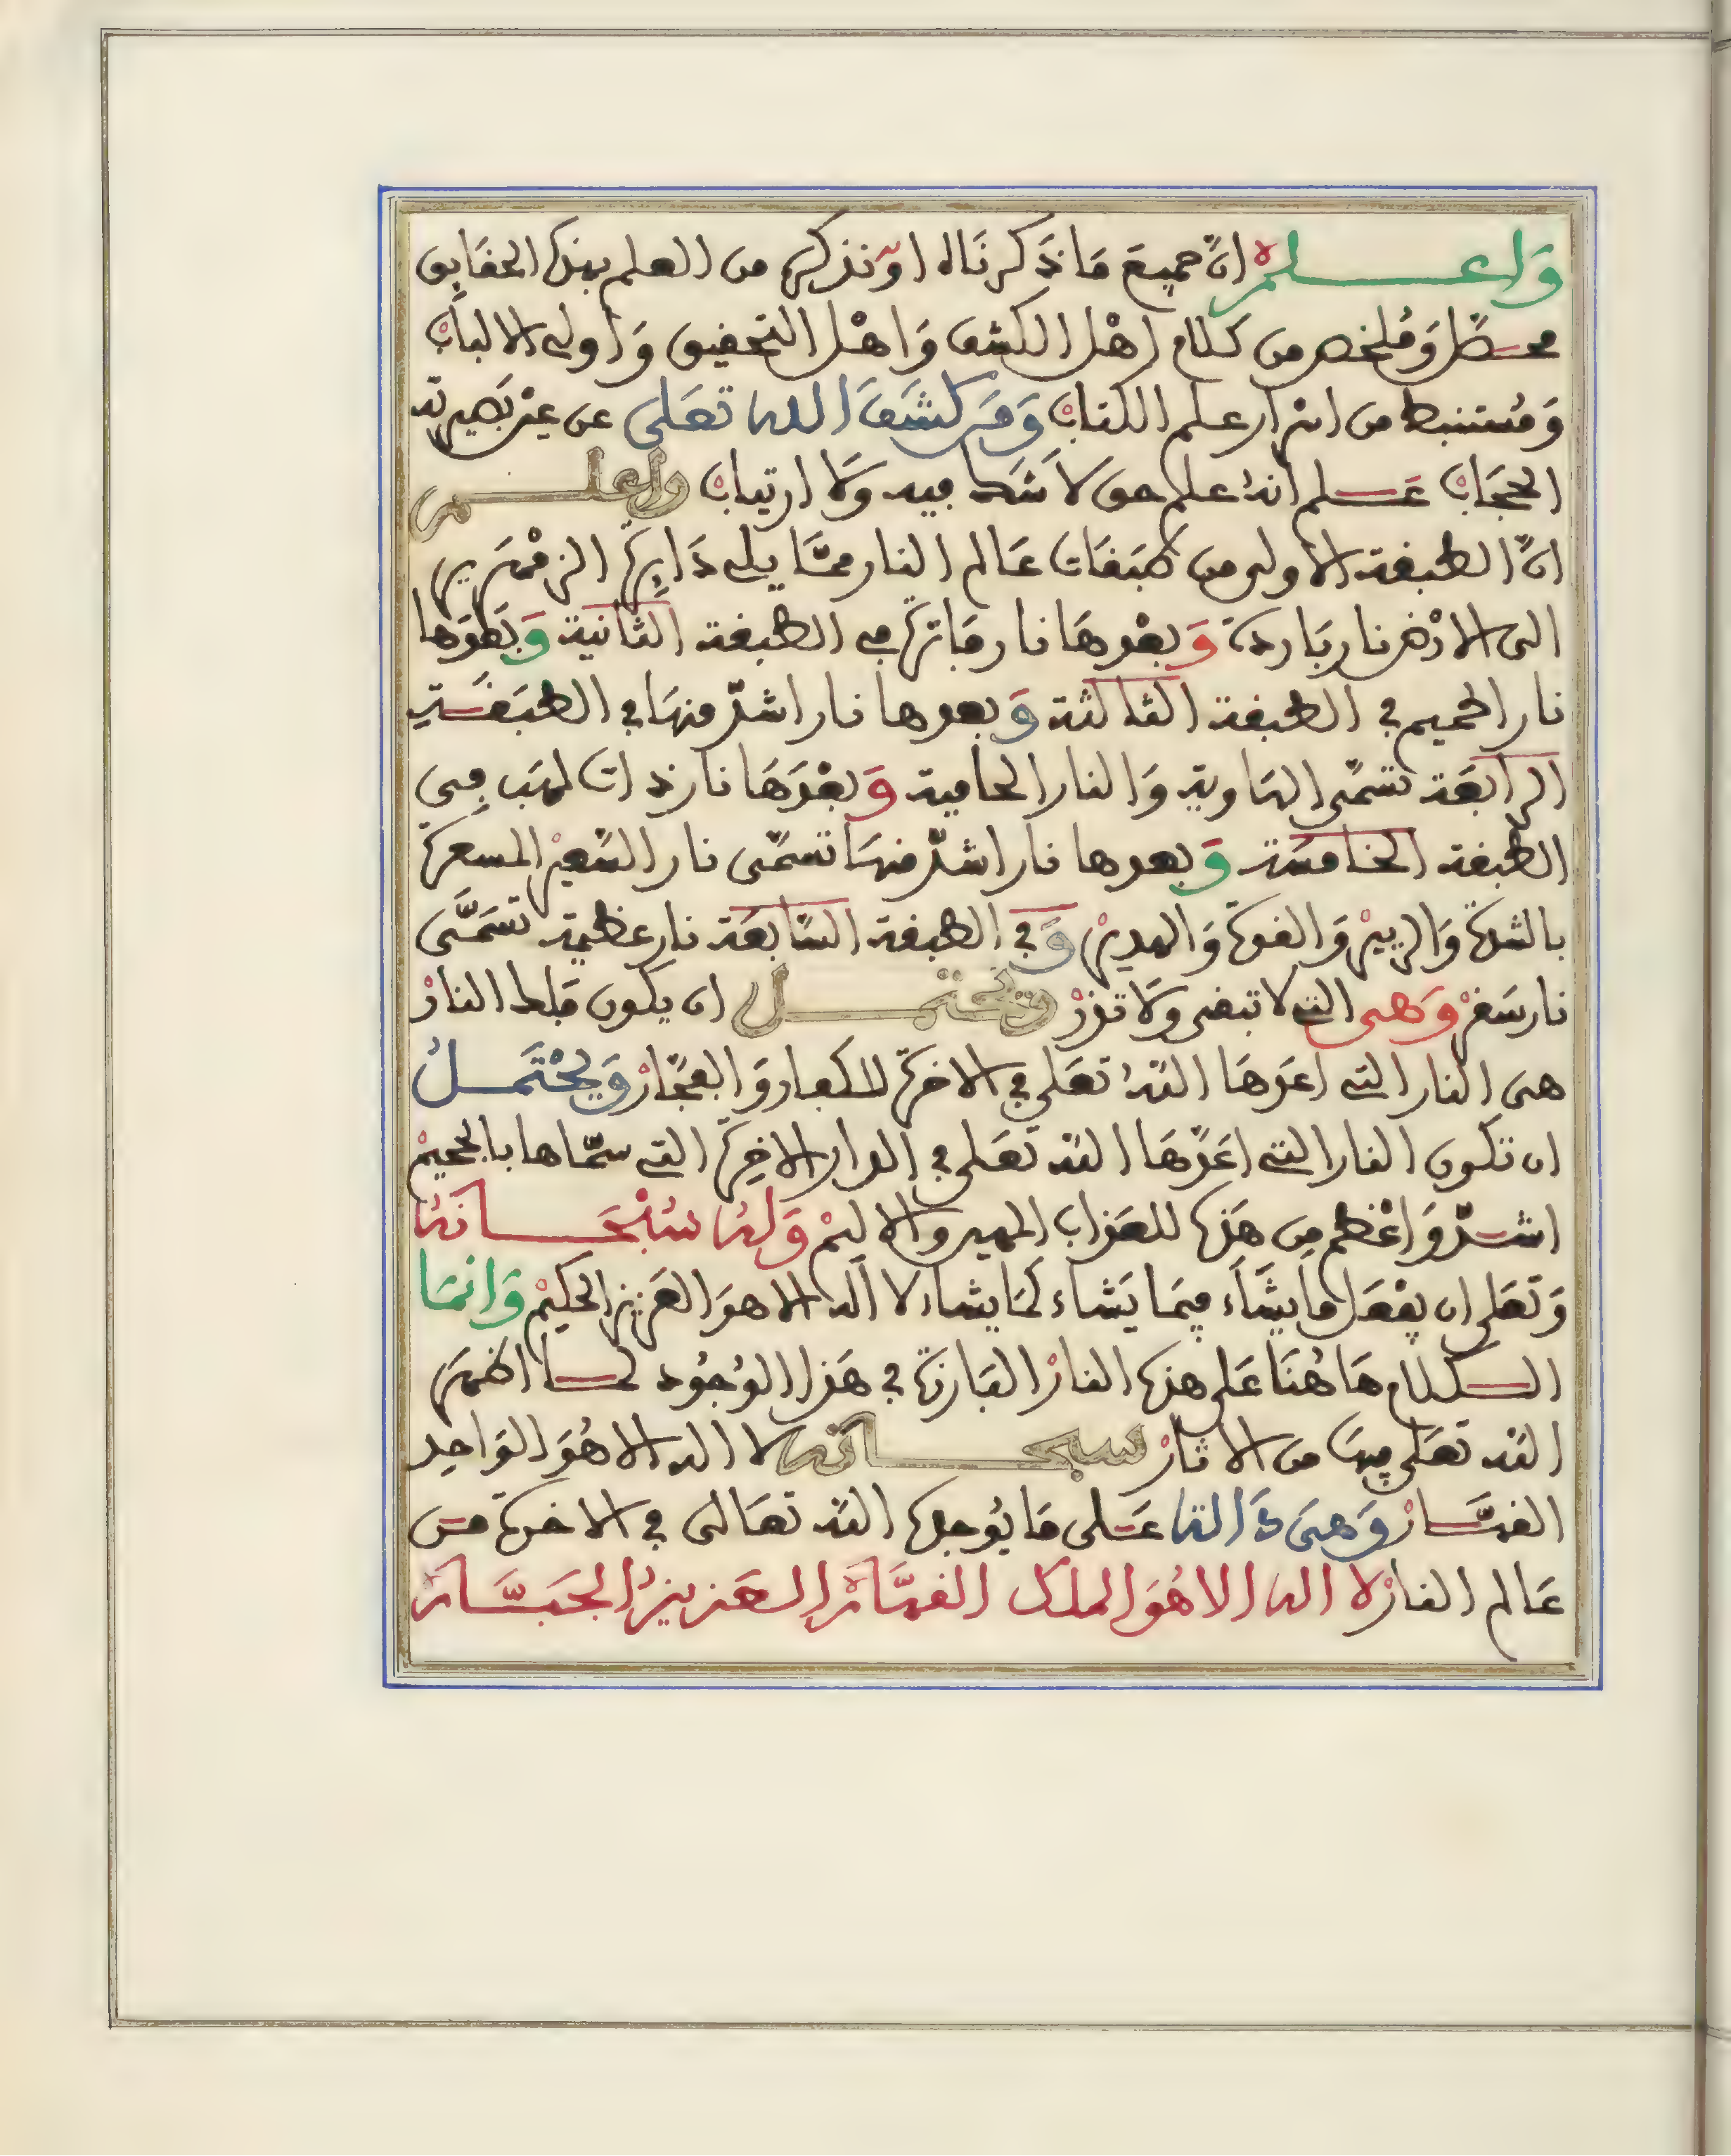 وَاعلم انّ جميعَ مَا ذَكرنَاه اوْ نذكره من العلم بهذه الحقَايق
محصّل وَملخص من كلام اهْل الكشف وَاهْل التحقيق وَاولى الالبابْ
وَمُستنبط من اسْرار علم الكتابْ وَمَن كشَفَ الله تعَلى عن عيْن بَصيرته
الحجَابْ عَلم انهُ علم حق لَا شَك فيه وَلَا ارتيابْ واعلم
انّ الطبقة الاولى من طبَقات عَالم النار ممَّا يلى دَايِرَة الزمْهَرير
الى الارْض نار بَاردة وَبعْدهَا نار فَاترة في الطبقة الثَّانية وَبَعْدَهَا
نار الحميم في الطبقة الثالثة وَبعدها نار اشدّ منهَا في الطبَقَةِ
الرابعَة تسَمّى الهَاوية وَالنار الحَامية وَبعْدَهَا نار ذات لهَب فِى
الطبقة الخامسَة وَبعدها نار اشدّ منهَا تسَمّى نار السّعيْر المسعرة
بالشدة وَالزفيرْ وَالقوة وَالهديرْ وَفي الطبقة السَّابعَة نار عَظيمة تسَمَّى
نار سَقرْ وَهى التى لا تبقى وَلَا تذرْ وَيحتمل ان يكون فلك النارْ
هى النار التى اعَدهَا اللهُ تعَلى في الاخرة للكفار وَالفجّارْ وَيحْتَمل
ان تكون النار التى اعَدّهَا الله تعَلى في الدار الاخِرة التى سمّاها بالجحيمْ
اشدّ وَاعْظم مِن هَذه للعَذاب المهين والاليمْ وَلهُ سُبْحَانهُ
وَتعَلى ان يفْعَل مَا يشَاء فِيمَا يَشاء كمَا يشاء لا الَه الا هوَ العَزيز الحكيمْ وَانمَا
الكلام هَاهُنَا عَلى هذه النارْ البَارزة في هَذا الوُجُود لمَا اظهَرَ
الله تعَلى فيهَا من الاثارْ سبحانه لا اله الا هُوَ الوَاحِد
القهَّارْ وَهىَ دَالة عَلى مَا يُوجدهُ الله تعَالى في الاخرة منَ
عَالم النارْ لا اله الا هُوَ الملك القهَّارْ العَزيزُ الجَبَّارْ